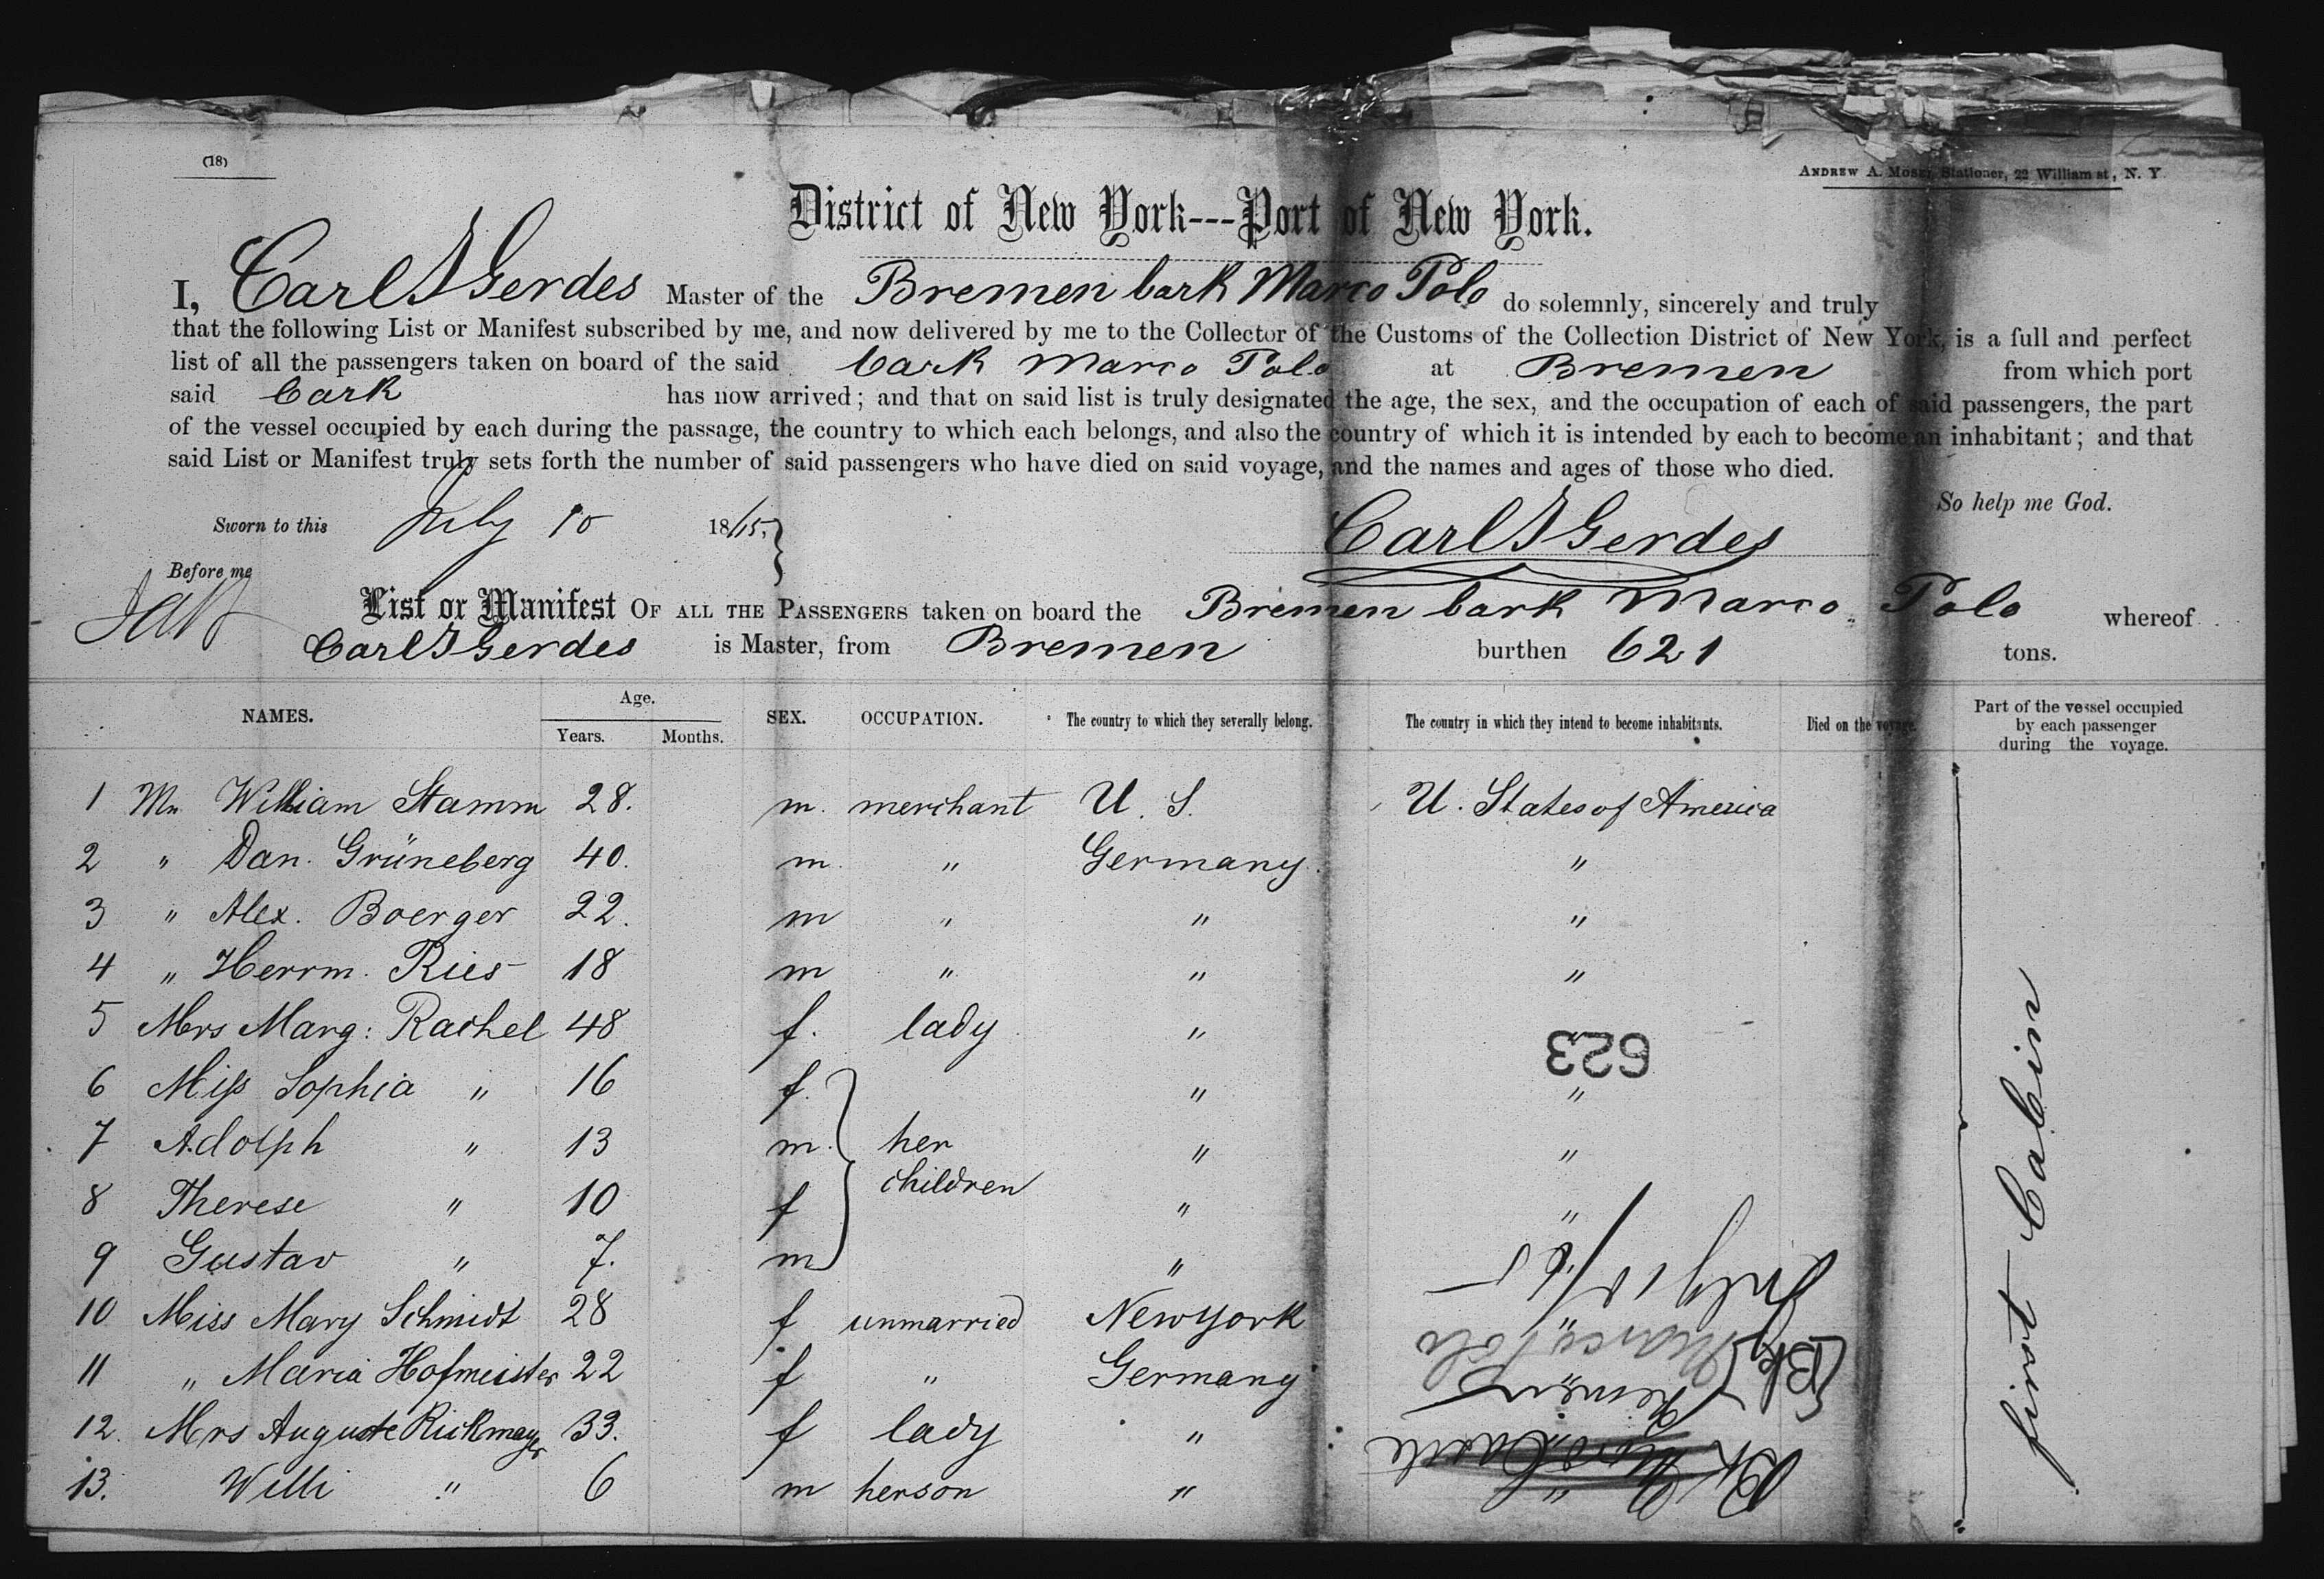 (18)
ANDREW A. Moser, Stationer, 22 William st, N. Y
District of New York---Port of New York.
I, Carl J Gerdes Master of the Bremen bark Marco Polo do solemnly, sincerely and truly
that the following List or Manifest subscribed by me, and now delivered by me to the Collector of the Customs of the Collection District of New York, is a full and perfect
list of all the passengers taken on board of the said bark Marco Polo at Bremen from which port
said bark has now arrived; and that on said list is truly designated the age, the sex, and the occupation of each of said passengers, the part
of the vessel occupied by each during the passage, the country to which each belongs, and also the country of which it is intended by each to become an inhabitant; and that
said List or Manifest truly sets forth the number of said passengers who have died on said voyage, and the names and ages of those who died.
So help me God.
Sworn to this July 10 1865.
Carl J Gerdes
Before me
List or Manifest OF ALL THE PASSENGERS taken on board the Bremen bark Marco Polo whereof
Carl J Gerdes is Master, from Bremen burthen 621 tons.
NAMES. Age. Years. Months. SEX. OCCUPATION. The country to which they severally belong. The country in which they intend to become inhabitants. Died on the voyage. Part of the vessel occupied by each passenger during the voyage.
1 Mr William Stamm 28. m. merchant U. S. U. States of America
2 " Dan. Grüneberg 40. m. " Germany. "
3 " Alex. Boerger 22. m " " "
4 " Herrm. Ries 18 m " " "
5 Mrs Marg: Rachel 48 f. lady " "
623
6 Miss Sophia " 16 f. her children " "
7 Adolph " 13 m. " "
8 Therese " 10 f " "
9 Gustav " 7. m " "
10 Miss Mary Schmidt 28 f unmarried New York "
11 " Maria Hofmeister 22 f " Germany "
12. Mrs Auguste Rickmayer 33. f lady " "
13. Willi " 6 m her son " "
first Cabin
Bk Marco Polo
Bremen
July 10/65